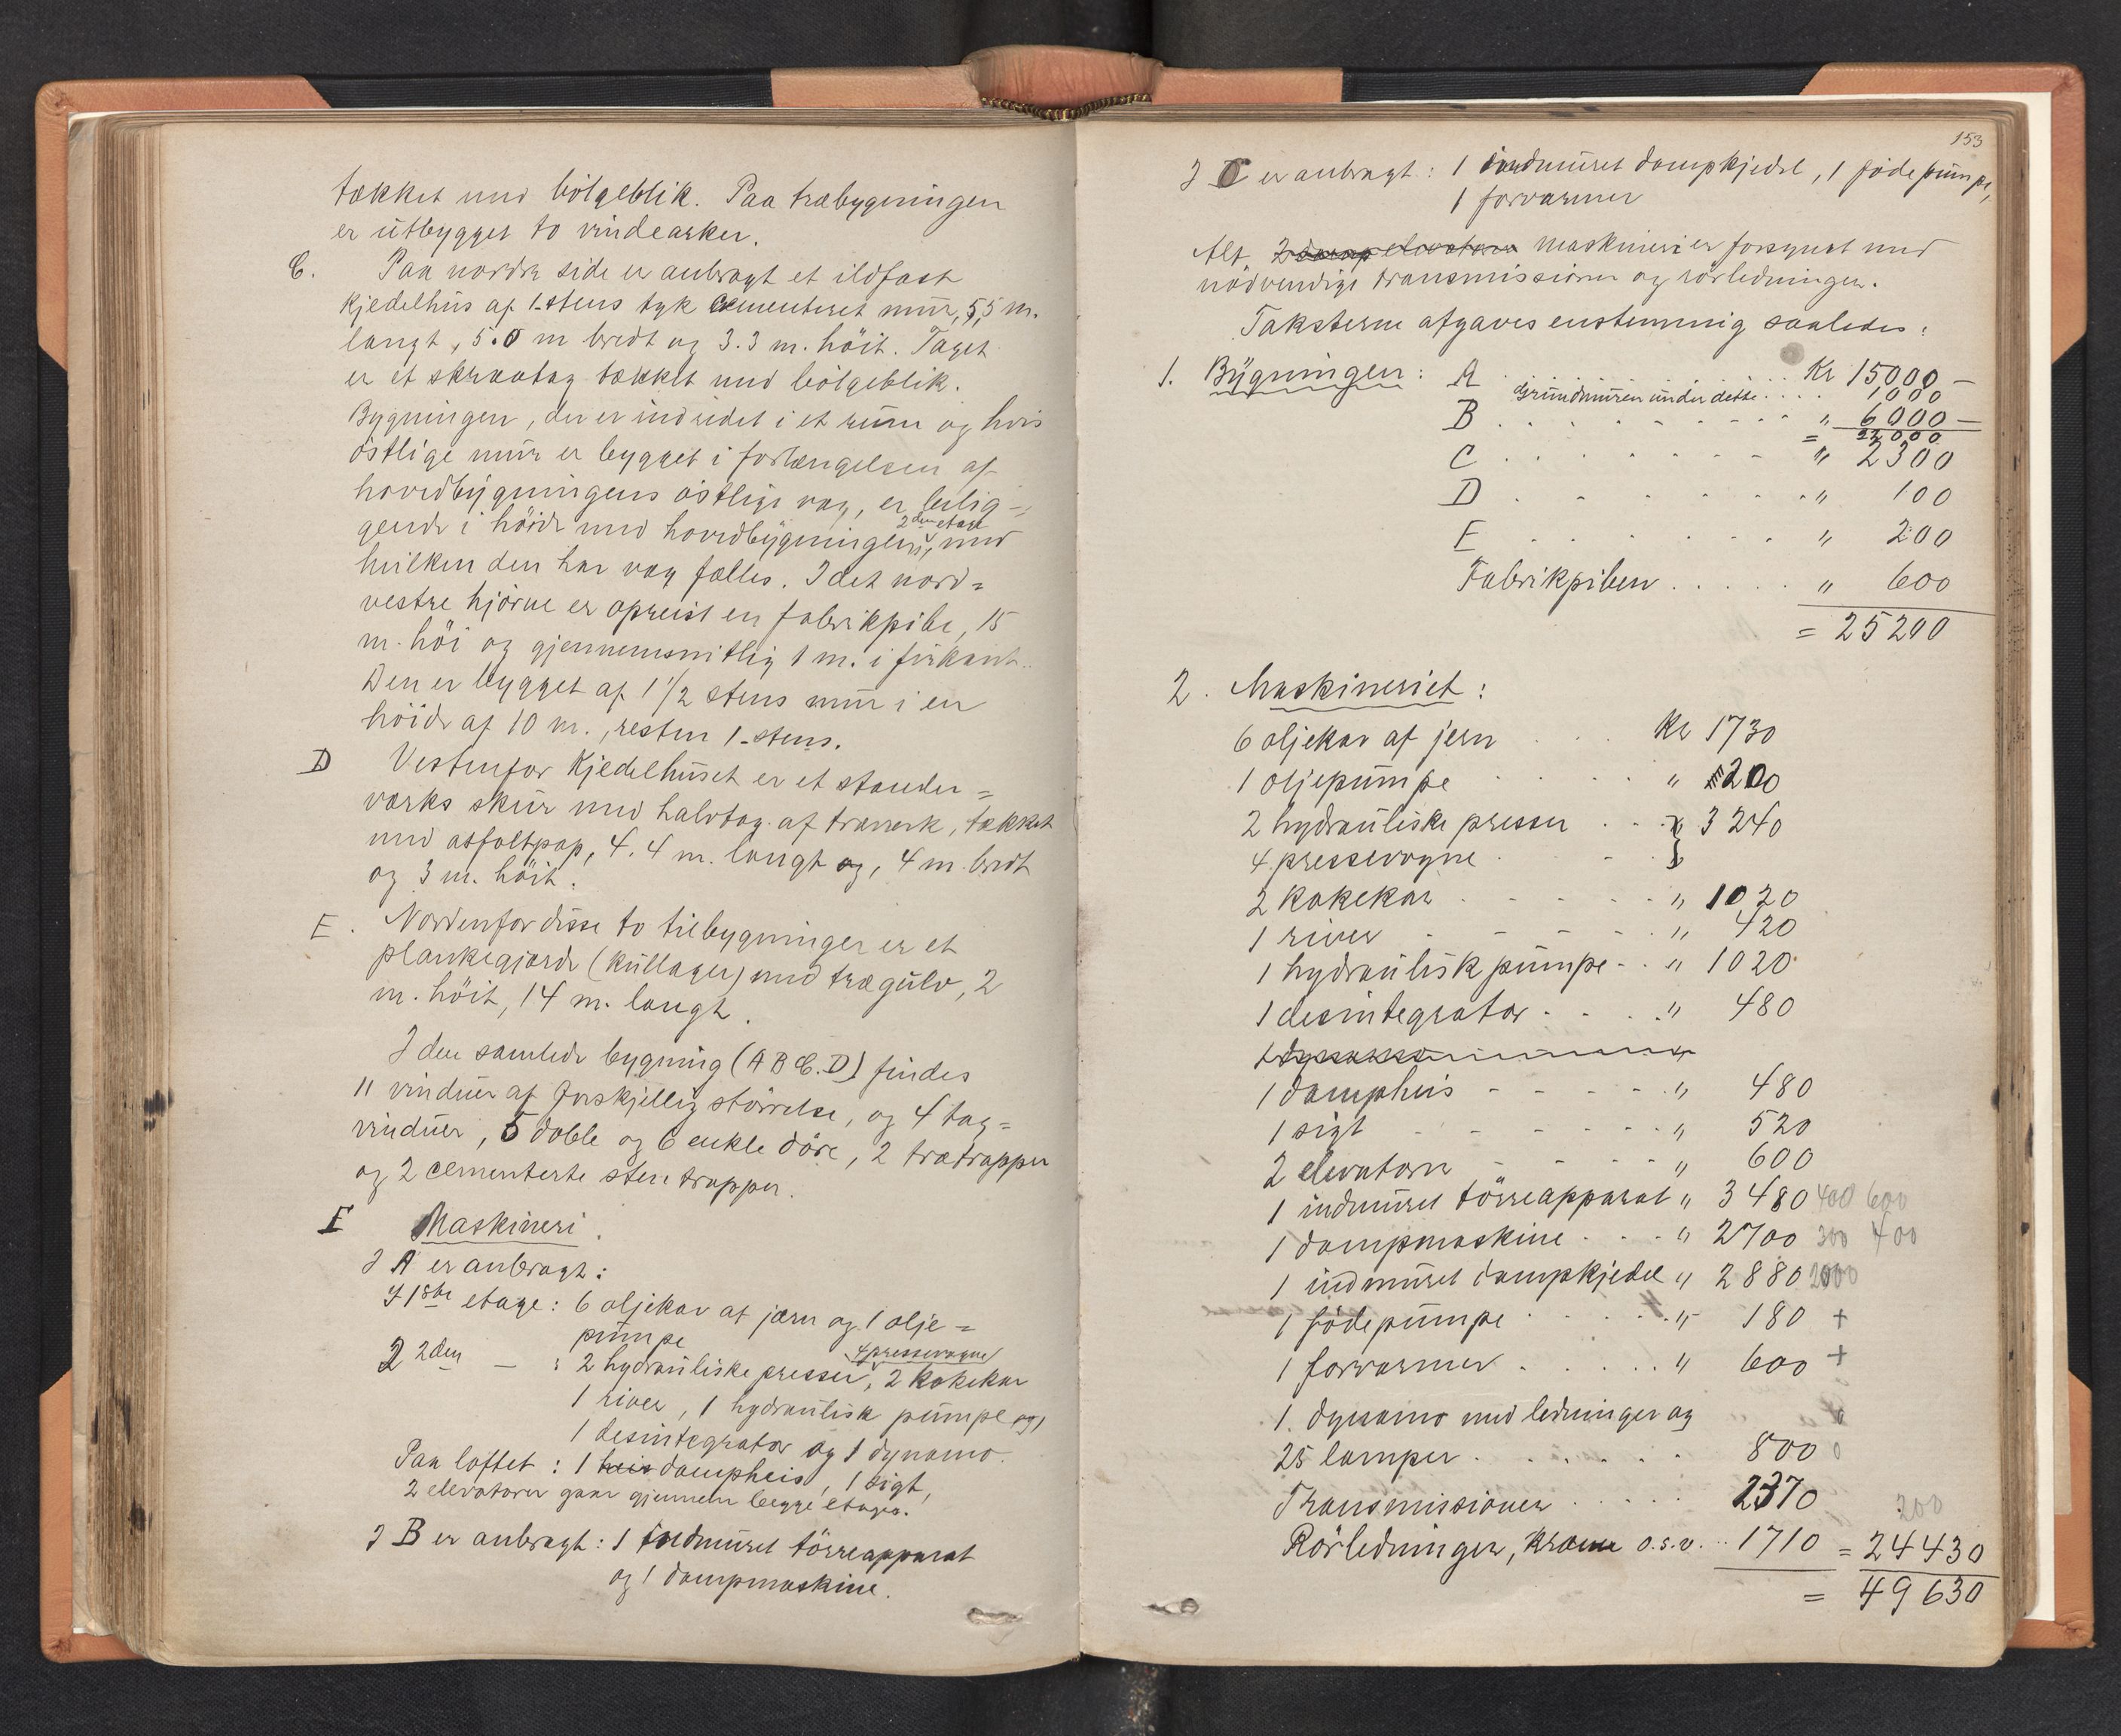 tækket med bölgeblik. Paa træbygningen
er utbygget to vindearker.
C. Paa nordre side er anbragt et ildfast
kjedelhus af 1-stens tyk cementeret mur, 5,5 m.
langt, 5.0 m bredt og 3.3 m. höit. Taget
er et skraatag tækket med bölgeblik.
Bygningen, der er indredet i et rum og hvis
östlige mur er bygget i forlængelsen af
hovedbygningens östlige væg, er belig-
gende i höide med hovedbygningens 2den etage, med
hvilken den har væg fælles. I det nord=
vestre hjörne er opreist en fabrikpibe, 15
m. höi og gjennemsnitlig 1 m. i firkant.
Den er bygget af 1 1/2 stens mur i en
höide af 10 m., resten 1-stens.
D Vestenfor Kjedelhuset er et stander=
værks skur med halvtag af træverk, tækket
med asfaltpap, 4.4 m. langt og, 4 m. bredt
og 3 m. höit.
E. Nordenfor disse to tilbygninger er et
plankegjærde (kullager) med trægulv, 2
m. höit, 14 m. langt.
I den samlede bygning (A B C. D) findes
11 vinduer af forskjellig störrelse, og 4 tag=
vinduer, 5 doble og 6 enkle döre, 2 trætrapper
og 2 cementerte sten trapper.
F Maskineri.
I A er anbragt:
I 1ste etage: 6 oljekar af jærn og 1 olje=
pumpe
2 2den — : 2 hydrauliske presser, 4 pressevogne, 2 kokekar
1 river, 1 hydraulisk pumpe og 1
1 desintegrator og 1 dynamo.
Paa loftet: 1 heis dampheis, 1 sigt,
2 elevatorer gaar gjennem begge etager.
I B er anbragt: 1 indmuret törreapparat
og 1 dampmaskine.
153
I C er anbragt: 1 indmuret dampkjedel, 1 födepumpe,
1 forvarmer
Alt 2 damp elevatorer maskineri er forsynet med
nödvendige transmissioner og rörledninger.
Taksterne afgaves enstemmig saaledes:
1. Bygningen: A . . . . Kr 15000 —
Grundmuren under dette . . . . 1000
B . . . . " 6000 —
= 22000
C . . . . " 2300
D . . . . " 100
E . . . . " 200
Fabrikpiben . . . . . " 600
= 25200
2. Maskineriet:
6 oljekar af jern . . . Kr 1730
1 oljepumpe . . . . " 200
2 hydrauliske presser . . " } 3240
4 pressevogne . . . }
2 kokekar . . . . " 1020
1 river - - - - " 420
1 hydraulisk pumpe - . " 1020
1 desintegrator . . . " 480
1 dampheis - - - - " 480
1 sigt - - - - " 520
2 elevatorer - - - - " 600
1 indmuret törreapparat " 3480 400 600
1 dampmaskine . . . " 2700 300 400
1 indmuret dampkjedel " 2880 2000
1 födepumpe . . . . " 180 +
1 forvarmer . . . . " 600 +
1. dynamo med ledninger og
25 lamper . . . . . 800
Transmissioner . . . . . 2370
200
Rörledninger, kraner o.s.v. . . 1710 = 24430
= 49630